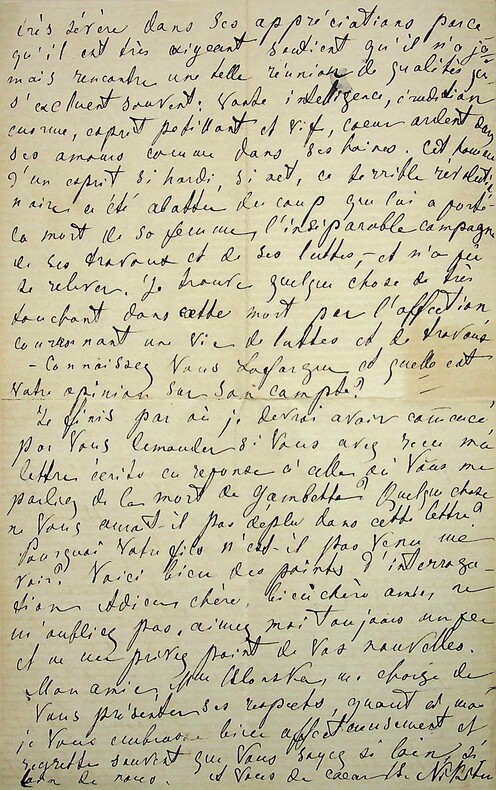 très sévère dans ses appréciations parce
qu'il est très exigeant soutient qu'il n'a ja-
mais rencontré une telle réunion de qualités qui
s'excluent souvent: Vaste intelligence, érudition
énorme, esprit pétillant et vif, coeur ardent dans
ses amours comme dans ses haines. Cet homme
d'un esprit si hardi si net, ce terrible révolutio-
naire a été abattu du coup que lui a porté
la mort de sa femme, l'inséparable compagne
de ses travaux et de ses luttes, et n'a pu
se relever. Je trouve quelque chose de très
touchant dans cette mort par l'affection
couronnant une vie de luttes et de travaux
- Connaissez Vous Lafargue et quelle est
Votre opinion sur son compte?
Je finis par où je devrai avoir commencé,
par Vous demander si Vous avez reçu ma
lettre écrite en réponse à celle où Vous me
parliez de la mort de Gambetta? Quelque chose
ne Vous aurait-il pas déplu dans cette lettre?
Pourquoi Votre fils n'est-il pas Venu me
voir? Voici bien des points d'interroga-
tion Adieu chère, bien chère amie, ne
m'oubliez pas, aimez moi toujours un peu
et ne me privez point de Vos nouvelles.
Mon amie, me charge de
Vous présenter ses respects, quant à moi
je Vous embrasse bien affectueusement et
regrette souvent que Vous soyez si loin, si
loin de nous. et Vous de coeur